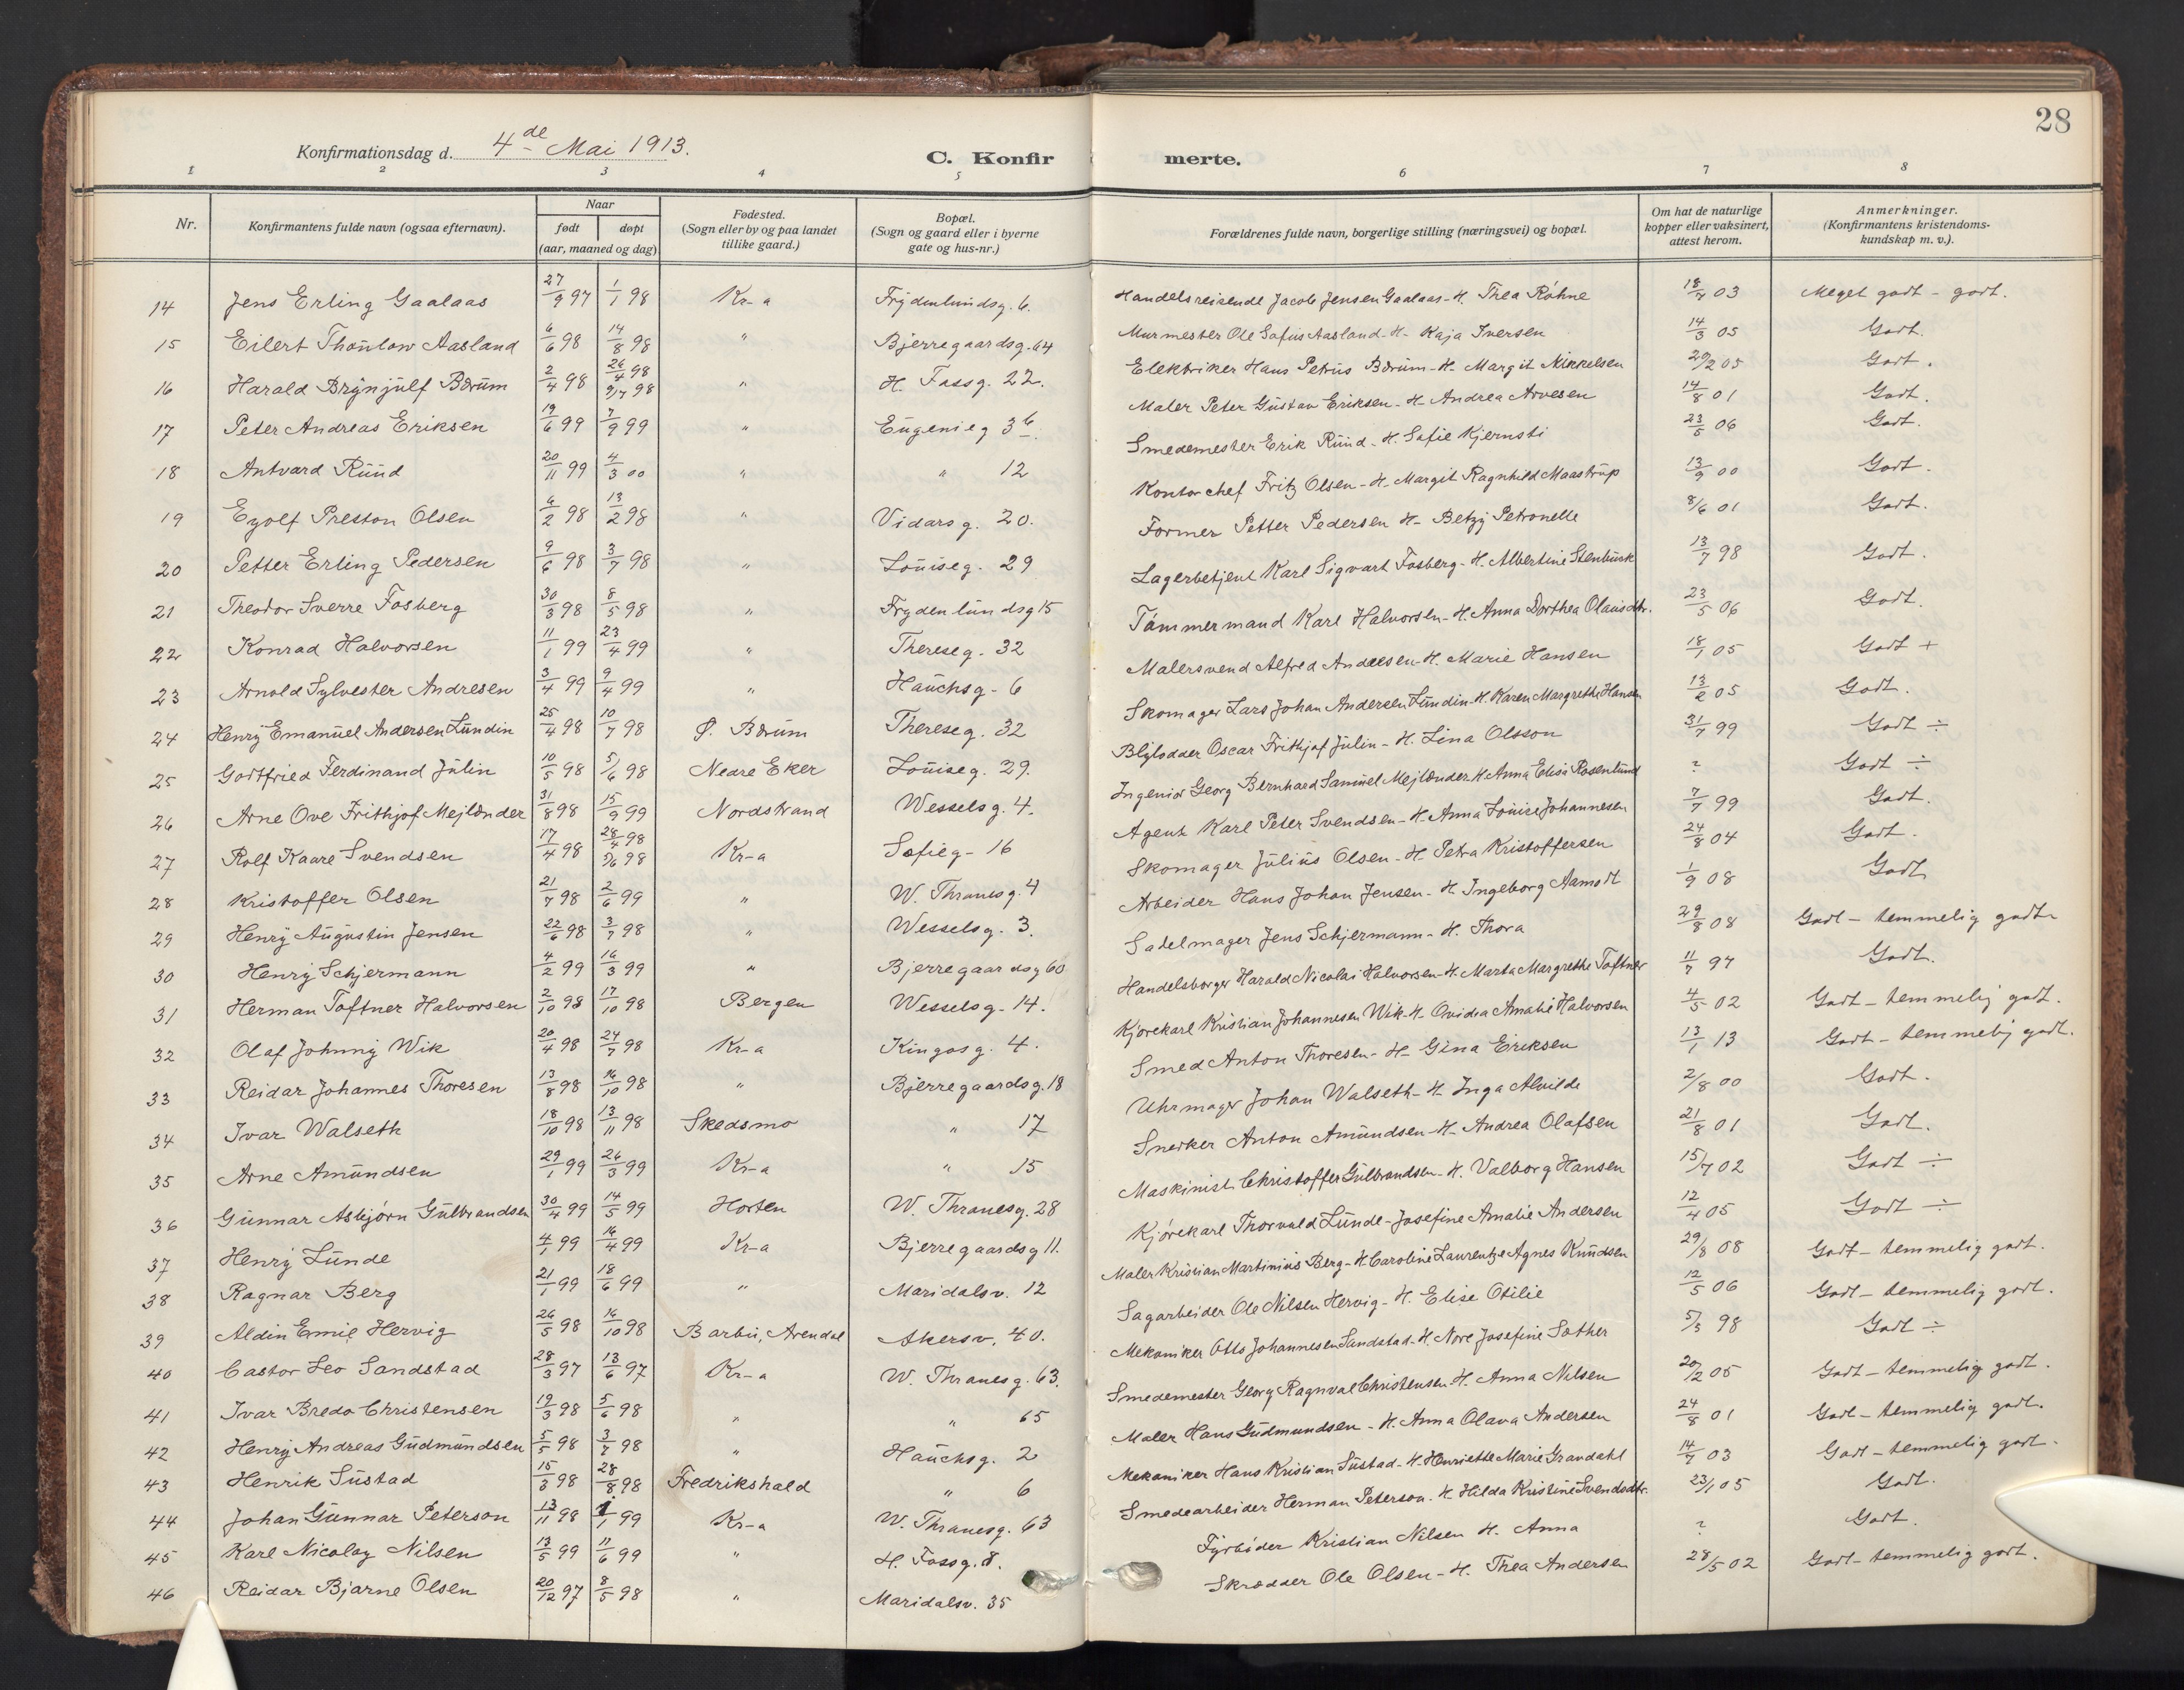 28
Konfirmationsdag d. 4de Mai 1913.
C. Konfirmerte.
1 2 3 4 5 6 7 8
Nr. Konfirmantens fulde navn (ogsaa efternavn). Naar født døpt (aar, maaned og dag) Fødested. (Sogn eller by og paa landet tillike gaard.) Bopæl. (Sogn og gaard eller i byerne gate og hus-nr.) Forældrenes fulde navn, borgerlige stilling (næringsvei) og bopæl. Om hat de naturlige kopper eller vaksinert, attest herom. Anmerkninger. (Konfirmantens kristendoms-kundskap m. v.).
14 Jens Erling Gaalaas 27/9 97 1/1 98 Kr-a Frydenlundsg. 6. Handelsreisende Jacob Jensen Gaalaas - H. Thea Røhne 18/7 03 Meget godt - godt.
15 Eilert Thoulow Aasland 6/6 98 14/8 98 " Bjerregaardsg. 64 Murmester Ole Sofus Aasland - H. Kaja Iversen 14/3 05 Godt.
16 Harald Brynjulf Bærum 2/4 98 26/4 98 9/7 98 " H. Fossg. 22. Elektriker Hans Petrus Bærum - H. Margit Mikkelsen 20/2 05 Godt.
17 Peter Andreas Eriksen 19/6 99 7/9 99 " Eugenieg 3 b. Maler Peter Gustav Eriksen - H. Andrea Arvesen 14/8 01 Godt.
18 Antvard Ruud 20/11 99 4/3 00 " " 12 Smedemester Erik Ruud - H. Sofie Kjernsli 23/5 06 Godt.
19 Eyolf Preston Olsen 6/2 98 13/2 98 " Vidarsg. 20. Kontorchef Fritz Olsen - H. Margit Ragnhild Maastrup 13/9 00 Godt.
20 Petter Erling Pedersen 9/6 98 3/7 98 " Louiseg. 29 Former Petter Pedersen H - Betzy Petronelle 8/6 01 Godt.
21 Theodor Sverre Fosberg 30/3 98 8/5 98 " Frydenlundsg 15 Lagerbetjent Karl Sigvart Fosberg - H. Albertine Stenbuck 13/7 98 Godt.
22 Konrad Halvorsen 11/1 99 23/4 99 " Thereseg. 32 Tømmermand Karl Halvorsen - H. Anna Dorthea Olausdtr. 23/5 06 Godt.
23 Arnold Sylvester Andresen 3/4 99 9/4 99 " Hauchsg - 6 Malersvend Alfred Andresen - H. Marie Hansen 18/1 05 Godt +
24 Henry Emanuel Andersen Lundin 25/4 98 10/7 98 Ø. Bærum Thereseg. 32 Skomager Lars Johan Andersen Lundin - H. Karen Margrethe Hansen 13/2 05 Godt.
25 Godtfried Ferdinand Julin 10/5 98 5/6 98 Nedre Eker Louiseg. 29. Blylodder Oscar Frithjof Julin - H. Lina Olsson 31/7 99 Godt ÷
26 Arne Ove Frithjof Mejlænder 31/8 98 15/9 99 Nordstrand Wesselsg. 4. Ingeniør Georg Bernhard Samuel Mejlænder H. Anna Elisa Rosenlund ? Godt ÷
27 Rolf Kaare Svendsen 17/4 98 28/4 98 5/6 98 Kr-a Sofieg - 16 Agent Karl Peter Svendsen - H. Anna Louise Johannesen 7/7 99 Godt.
28 Kristoffer Olsen 21/7 98 2/6 99 " W. Thranesg. 4 Skomager Julius Olsen - H. Petra Kristoffersen 24/8 04 Godt.
29 Henry Augustin Jensen 22/6 98 3/7 98 " Wesselsg. 3. Arbeider Hans Johan Jensen - H. Ingeborg Aamodt 1/9 08 Godt
30 Henry Schjermann 4/2 99 16/3 99 " Bjerregaardsg 60 Sadelmager Jens Schjermann - H. Thora 29/8 08 Godt - temmelig godt
31 Herman Toftner Halvorsen 2/10 98 17/10 98 Bergen Wesselsg - 14. Handelsborger Harald Nicolai Halvorsen - H. Marta Margrethe Toftner 11/7 97 Godt.
32 Olaf Johnny Wik 20/4 98 24/7 98 Kr-a Kingosg. 4. Kjørekarl Kristian Johannesen Wik - H. Ovidia Amalie Halvorsen 4/5 02 Godt - temmelig godt.
33 Reidar Johannes Thoresen 13/8 98 16/10 98 " Bjerregaardsg. 18 Smed Anton Thoresen - H - Gina Eriksen 13/1 13 Godt - temmelig godt.
34 Ivar Walseth 18/10 98 13/11 98 Skedsmo " 17 Uhrmager Johan Walseth - H. Inga Alvilde 2/8 00 Godt.
35 Arne Amundsen 29/1 99 26/3 99 Kr-a " 15 Snedker Anton Amundsen - H. Andrea Olafsen 21/8 01 Godt.
36 Gunnar Asbjørn Gulbrandsen 30/4 99 14/5 99 Horten W. Thranesg. 28 Maskinist Christoffer Gulbrandsen - H. Valborg Hansen 15/7 02 Godt ÷
37 Henry Lunde 4/1 99 16/4 99 Kr-a Bjerregaardsg 11. Kjørekarl Thorvald Lunde - Josefine Amalie Andersen 12/4 05 Godt ÷
38 Ragnar Berg 21/1 99 18/6 99 " Maridalsv. 12 Maler Kristian Martinius Berg - H. Caroline Laurentze Agnes Knudsen 29/8 08 Godt - temmelig godt.
39 Aldin Emil Hervig 26/5 98 16/10 98 Barbu, Arendal Akersv. 40. Sagarbeider Ole Nilsen Hervig - H. Elise Otilie 12/5 06 Godt - temmelig godt.
40 Castor Leo Sandstad 28/3 97 13/6 97 Kr-a W. Thranesg. 63. Mekaniker Otto Johannesen Sandstad - H. Nore Josefine Sæther 5/3 98 Godt ÷
41 Ivar Bredo Christensen 19/3 98 5/6 98 " " 65 Smedemester Georg Ragnval Christensen - H. Anna Nilsen 20/2 05 Godt - temmelig godt.
42 Henry Andreas Gudmundsen 5/5 98 3/7 98 " Hauchsg. 2 Maler Hans Gudmundsen - H. Anna Olava Andersen 24/8 01 Godt - temmelig godt.
43 Henrik Sustad 15/3 98 28/8 98 Fredrikshald " 6 Mekaniker Hans Kristian Sustad - H. Henriette Marie Grandahl 14/7 03 Godt - temmelig godt.
44 Johan Gunnar Peterson 13/11 98 1/1 99 Kr-a W. Thranesg. 63 Smedearbeider Herman Peterson. H. Hilda Kristine Svendsdtr. 23/1 05 Godt.
45 Karl Nicolay Nilsen 13/5 99 11/6 99 " H. Fossg. 8. Fyrbøder Kristian Nilsen H. Anna ? Godt.
46 Reidar Bjarne Olsen 20/12 97 8/5 98 " Maridalsv. 35 Skrædder Ole Olsen - H. Thea Andersen 28/5 02 Godt - temmelig godt.